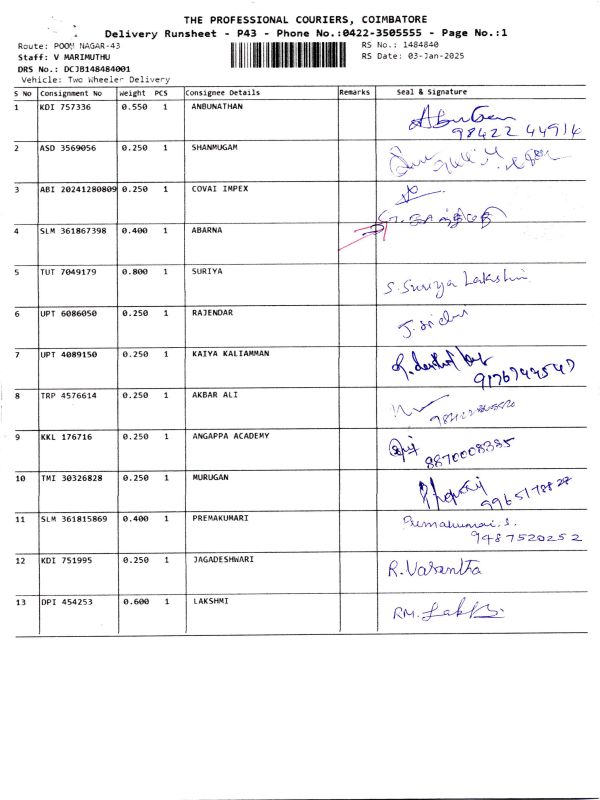 THE PROFESSIONAL COURIERS, COIMBATORE
Delivery Runsheet - P43 - Phone No.:0422-3505555 - Page No.:1
Route: POOM NAGAR-43 RS No.: 1484840
Staff: V MARIMUTHU RS Date: 03-Jan-2025
DRS No.: DCJB148484001
Vehicle: Two Wheeler Delivery
S No Consignment No Weight PCS Consignee Details Remarks Seal & Signature
1 KDI 757336 0.550 1 ANBUNATHAN
98422 44914
2 ASD 3569056 0.250 1 SHANMUGAM
3 ABI 20241280809 0.250 1 COVAI IMPEX
4 SLM 361867398 0.400 1 ABARNA
5 TUT 7049179 0.800 1 SURIYA S. Suriya Lakshmi
6 UPT 6086050 0.250 1 RAJENDAR
7 UPT 4089150 0.250 1 KAIYA KALIAMMAN
8 TRP 4576614 0.250 1 AKBAR ALI
9 KKL 176716 0.250 1 ANGAPPA ACADEMY
8870008335
10 TMI 30326828 0.250 1 MURUGAN
11 SLM 361815869 0.400 1 PREMAKUMARI Premakumari. S.
9487520252
12 KDI 751995 0.250 1 JAGADESHWARI R. Vasantha
13 DPI 454253 0.600 1 LAKSHMI RM.